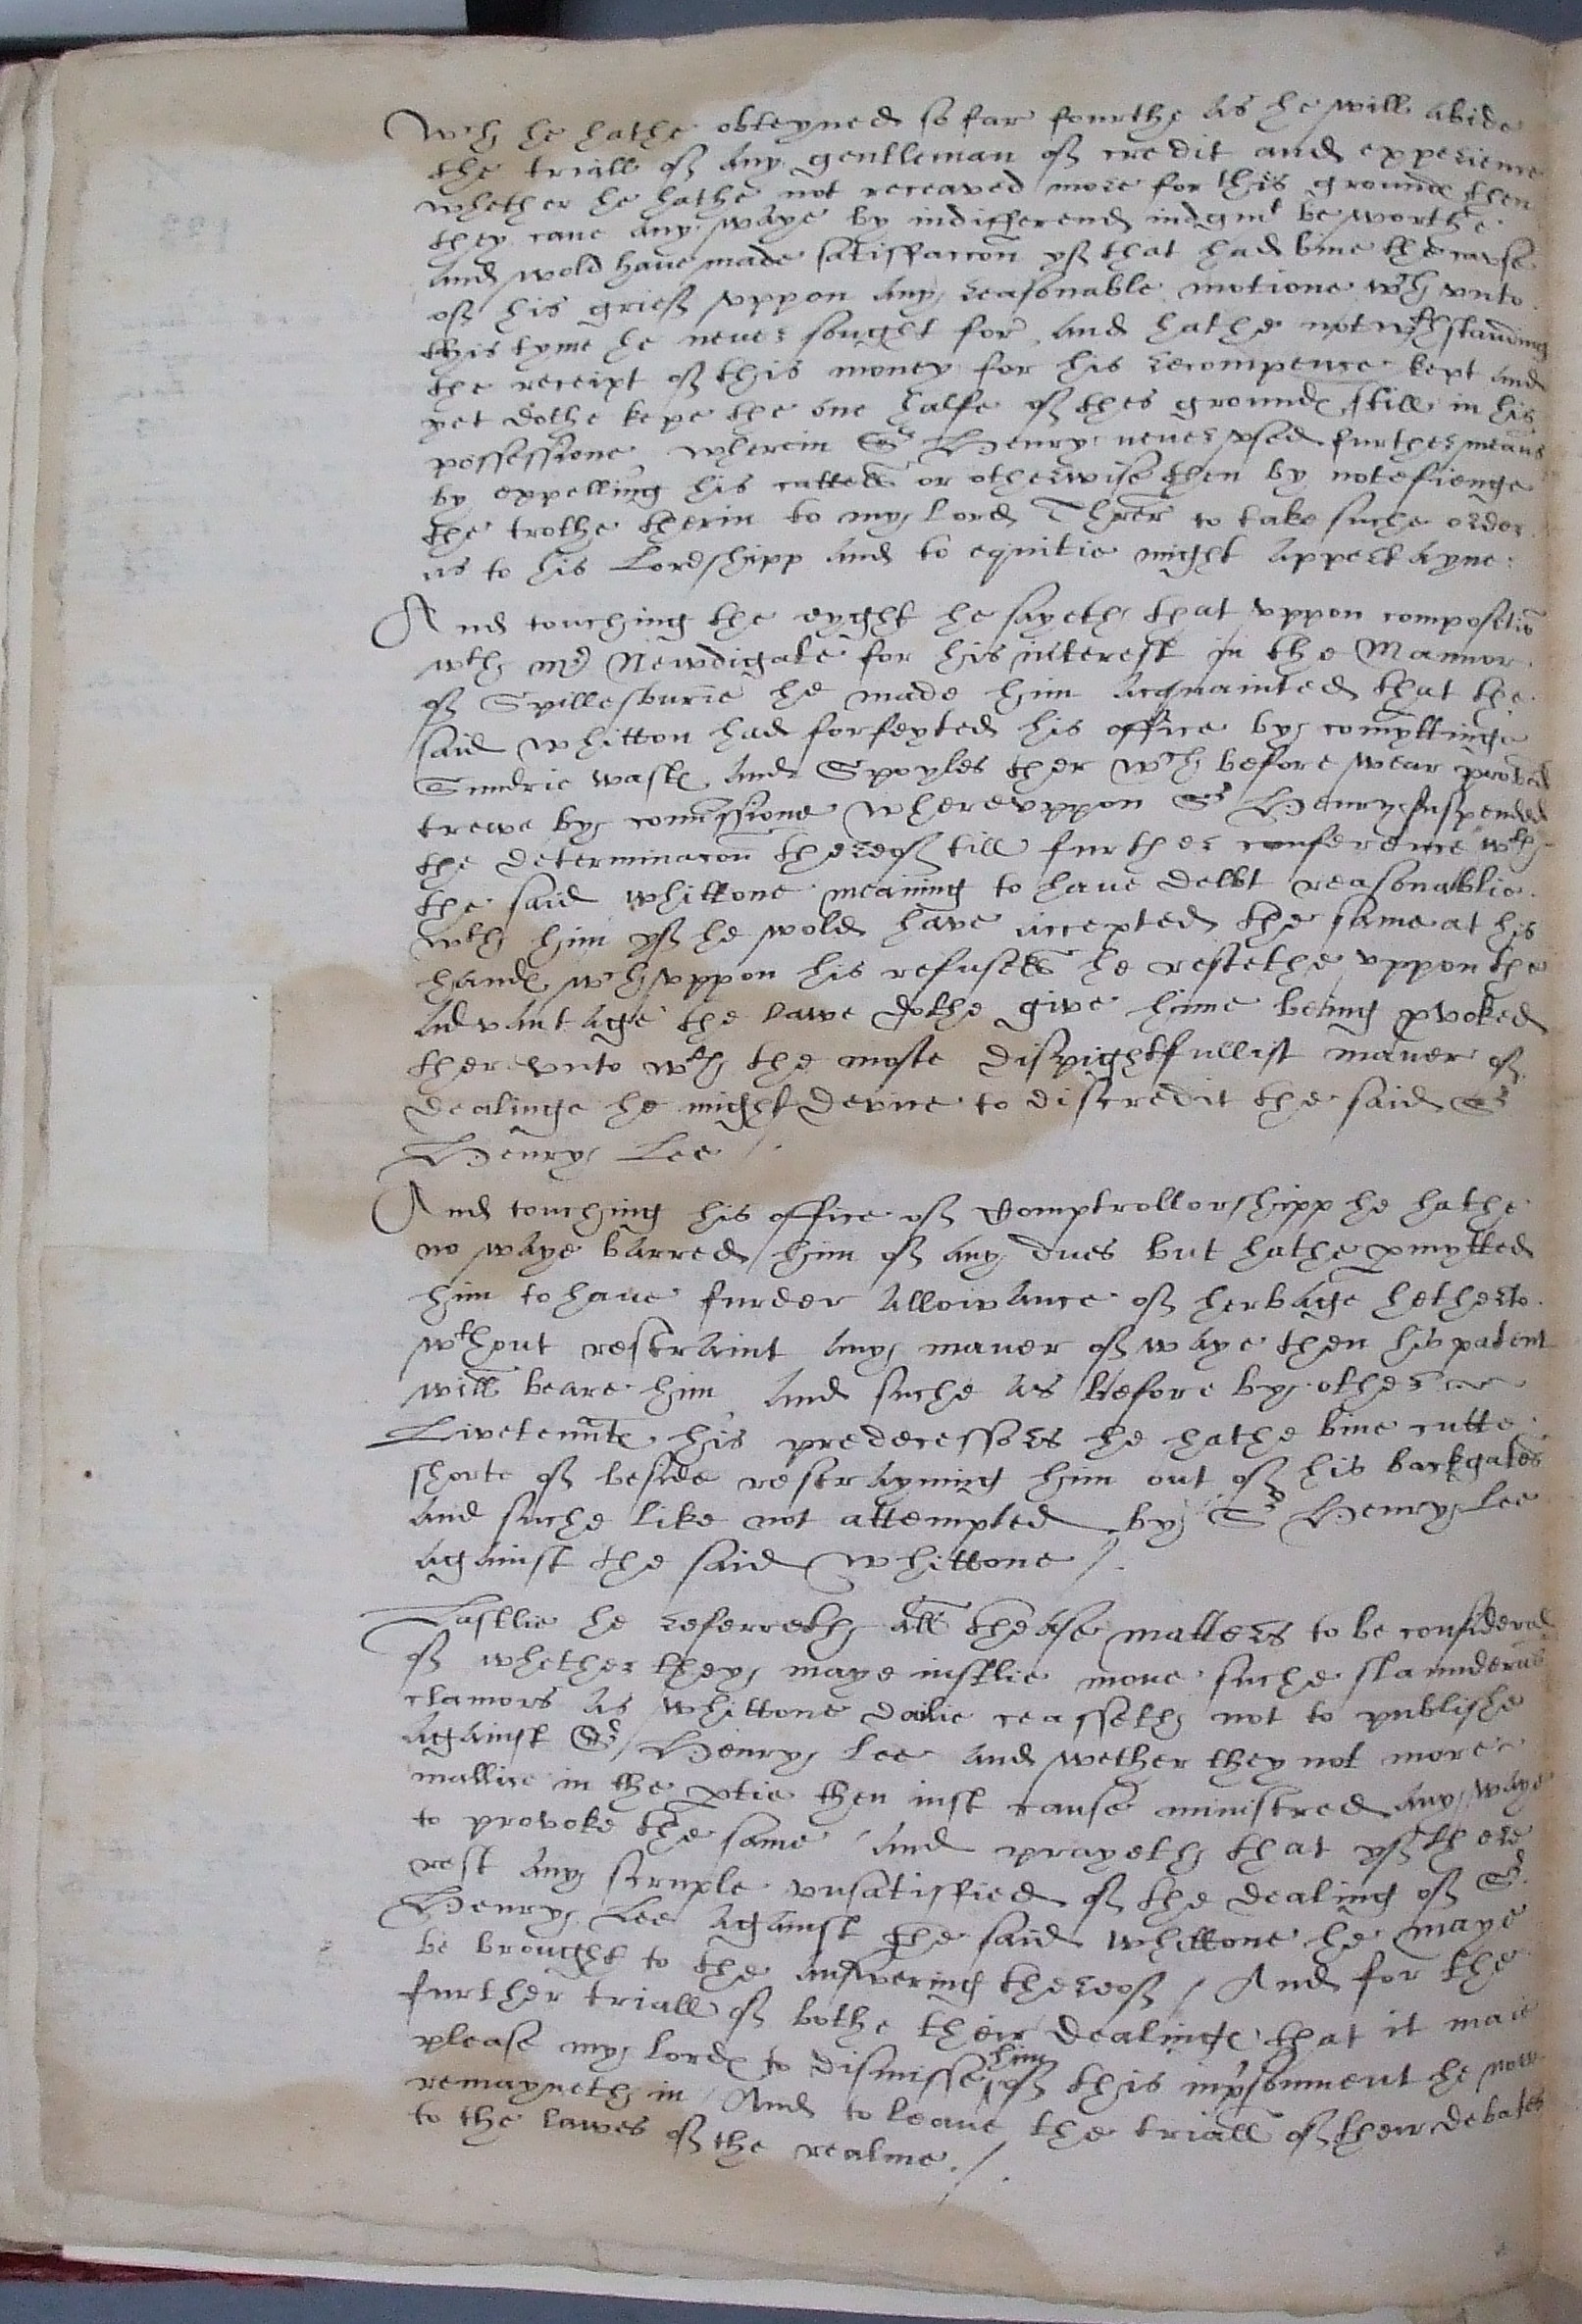 Wch he hathe obteyned so far fourthe as he will abide
the triall of any gentleman of credit and experience
whether he hathe not receaved more for this grounde then
they cane any waye by indifferend iudgmt be worthe
and wold have made satisfaccon yf that had bine the cause
of his grief uppon any reasonable motione wch unto
this tyme he never sought for, and hathe notwthstanding
the receipt of this money for his recompence kept and
yet dothe kepe the one halfe of thes grounde still in his
possessione, wherein Sr Henry never used further means
by expelling his cattell or otherwise then by notefienge
the trothe therin to my lord Threr to take suche order
as to his Lordshipp and to equitie might appertayne:
And touching the eyght he sayeth that uppon composition
wth mr Newdigate for his interest in the Mannor
of Spillesburie he made him acquainted that the
said Whitton had forfeyted his office by comyttinge
Sundrie waste and Spoyles ther wch before wear proved
trewe by comissione whereuppon Sr Henry suspended
the determinacon thereof till further conference wth
the said Whittone meaning to have delbt reasonablie
wth him yf he wold have accepted the same at his
hande wch uppon his refusell he restethe uppon the
advantage the lawe dothe give hime being pvoked
therevnto wth the moste dispightfullist maner of
dealinge he might devise to discredit the said Sr
Henry Lee /.
And touching his office of Comptrollorshipp he hathe
no waye barred him of any dues but hathe pmytted
him to have furder allowance of herbage hetherto
wthout restraint any maner of waye then his patent
will beare him and suche as before by other
Livetennte his predecessors he hathe bine cutte
shorte of beside restrayning him out of his backgates
and suche like not attempted by Sr Henry Lee
against the said Whittone /.
Lastlie he referreth all thease matters to be considered
of whether they maye iustlie move suche slaunderus
clamors as Whittone dailie ceasseth not to publishe
against Sr Henry Lee and wether they not more
mallice in the ptie then iust cause ministred any waye
to provoke the same and prayeth that yf there
rest any scruple unsatisfied of the dealing of Sr
Henry Lee against the said Whittone he maye
be brought to the answering thereof / And for the
further triall of bothe their dealinge that it maie
please my lorde to dismisse him of this inpsonment he now
remayneth in / And to leave the triall of their debates
to the lawes of the realme ./.